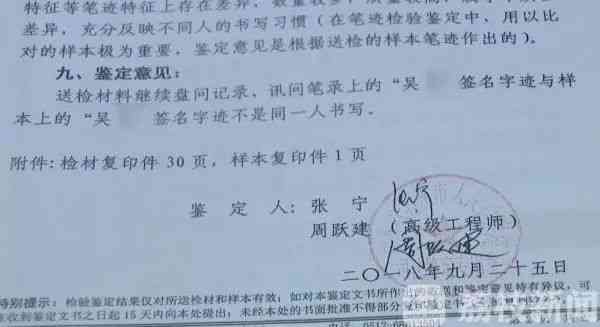 特征等笔迹特征上存在差异，数量较多，质量较高，
差异，充分反映不同人的书写习惯（在笔迹检验鉴定中，用以比
对的样本极为重要，鉴定意见是根据送检的样本笔迹作出的）。
九、鉴定意见：
送检材料继续盘问记录、讯问笔录上的“吴 签名字迹与样
本上的“吴 签名字迹不是同一人书写。
附件：检材复印件 30 页，样本复印件 1 页
鉴 定 人：张 宁
周跃建 （高级工程师）
周跃建
二〇一八年九月二十五日
特别提示：检验鉴定结果仅对所送检材和样本有效；如对本鉴定文书所作出的 和鉴定意见持有异议，可
收到鉴定文书之日起 15 天内向本处提出；未经本处的书面批准不得部分复
电话：0512-
荔枝新闻